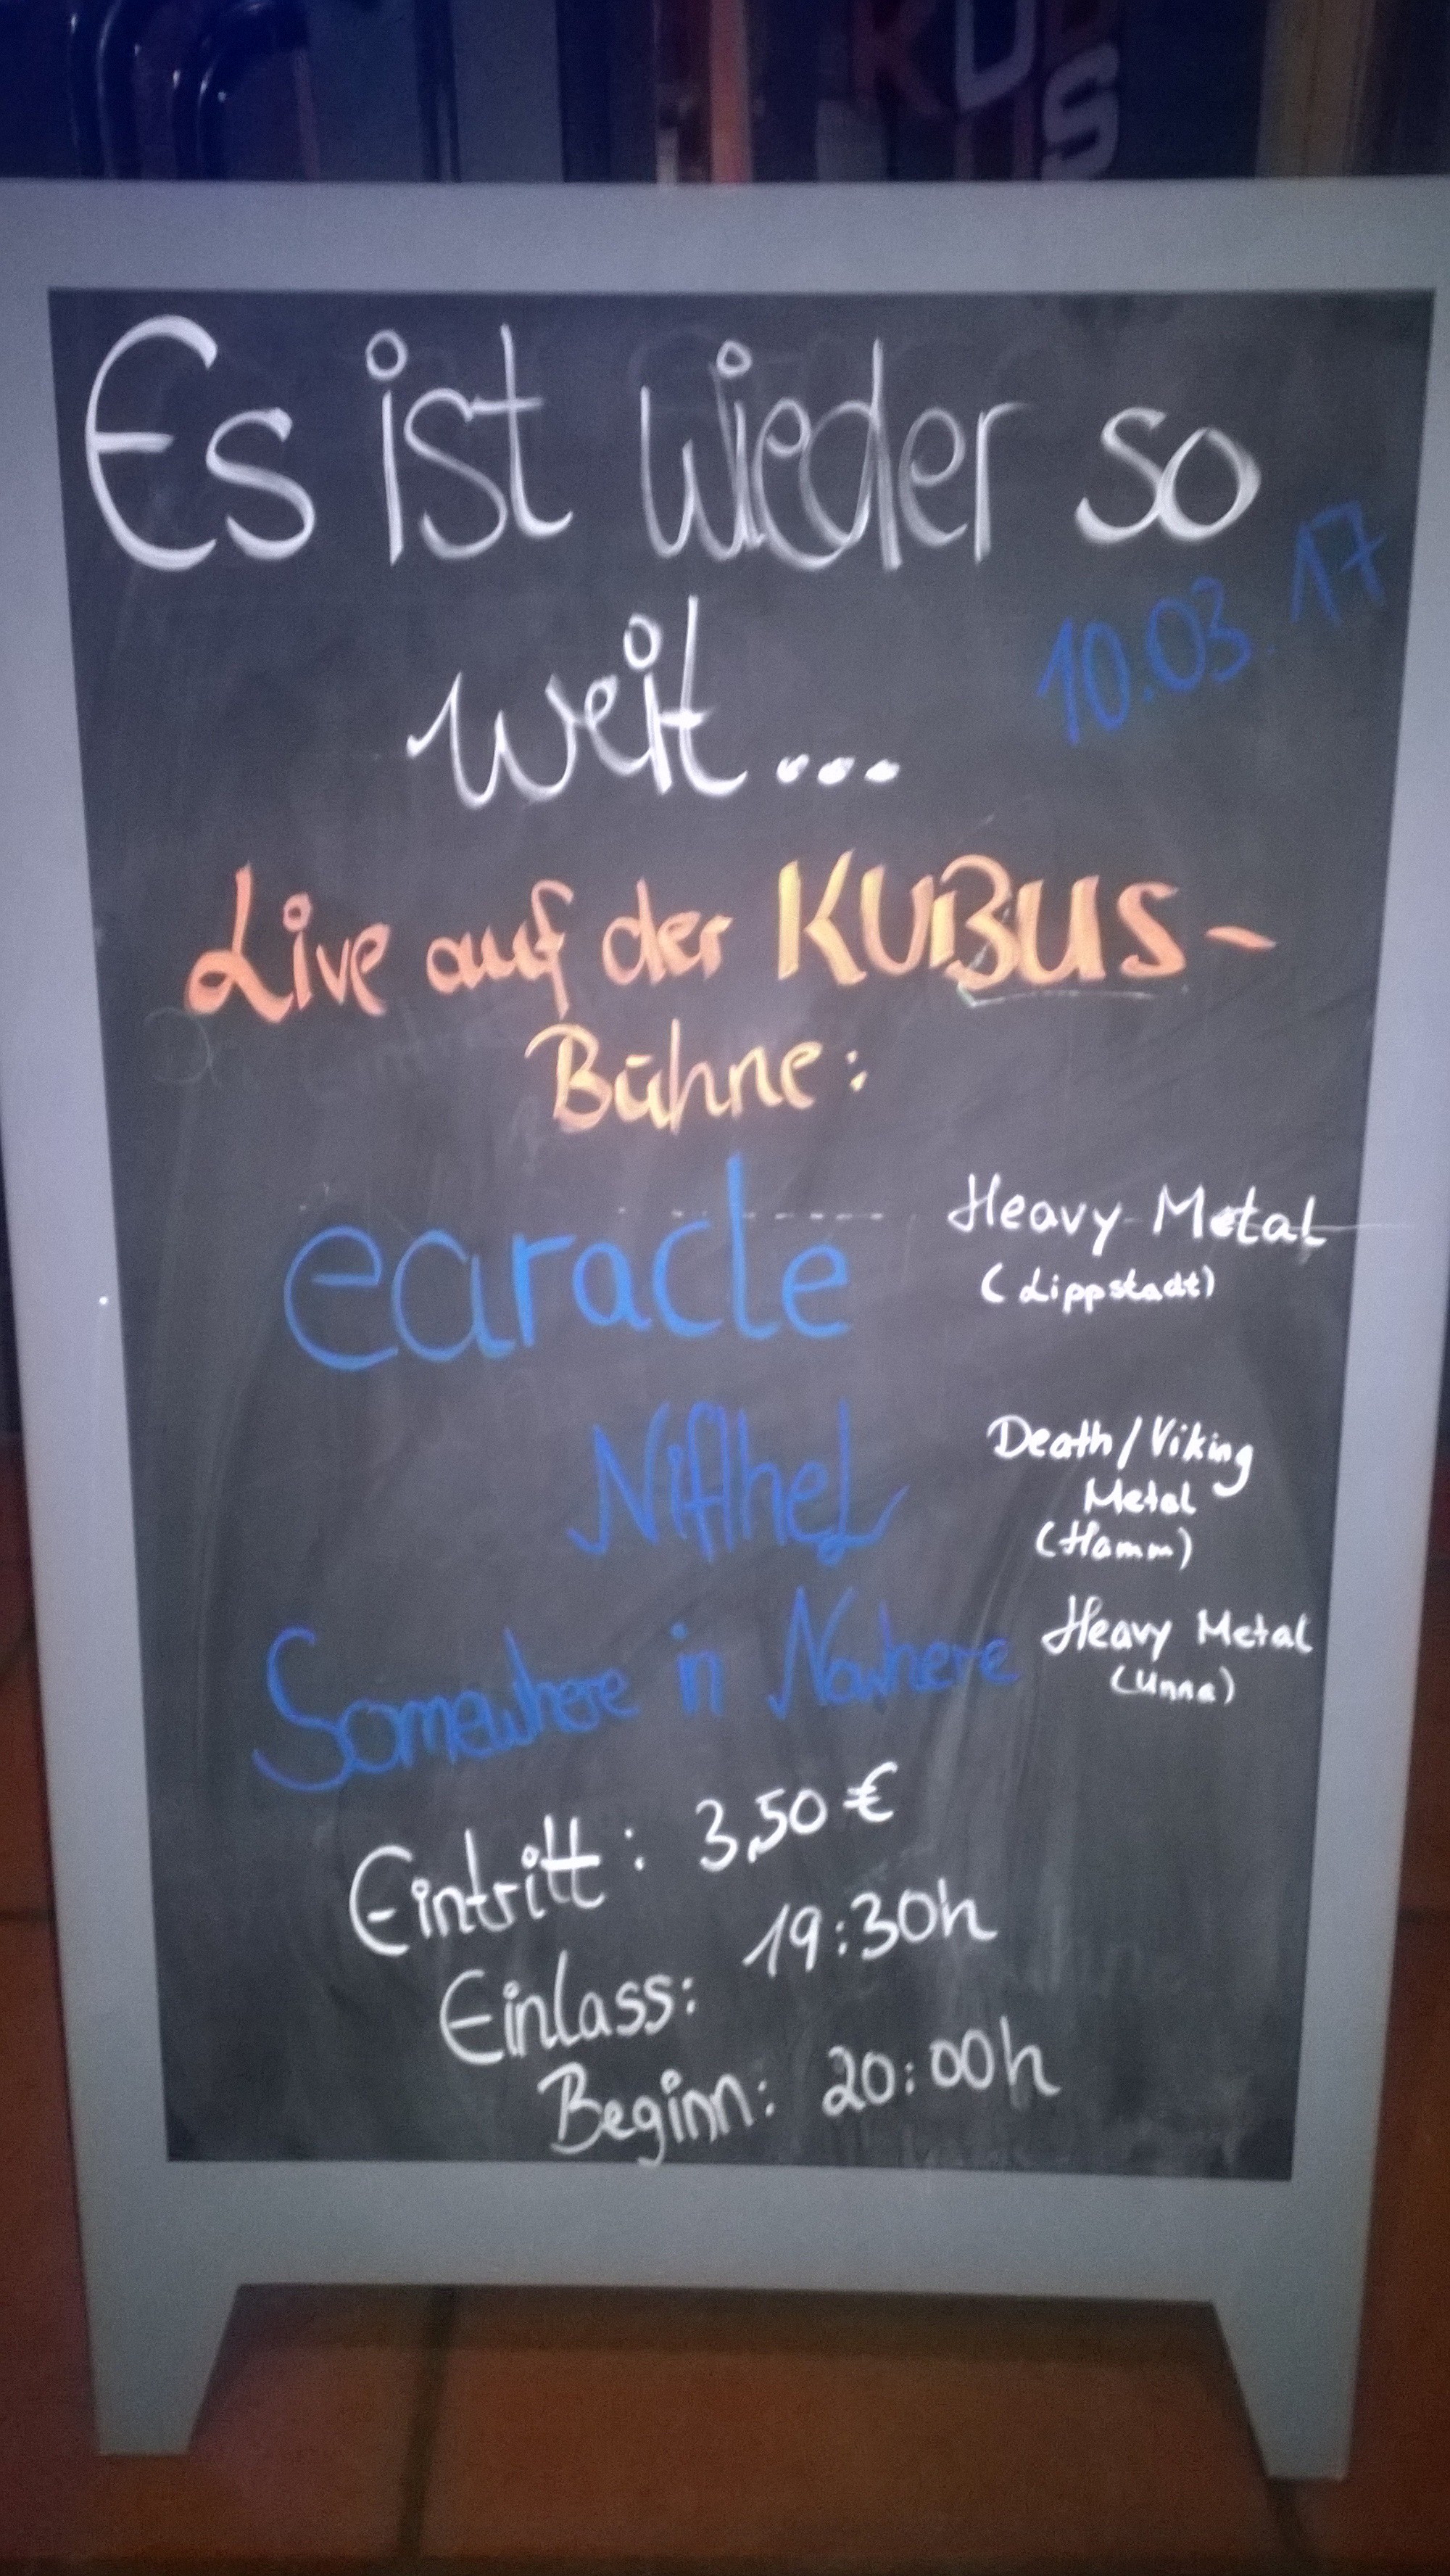 KUB
US
Es ist wieder so
weit...
10.03.17
Live auf der KUBUS-
Bühne:
earacle
Heavy Metal
(Lippstadt)
Niflhel
Death/Viking
Metal
(Hamm)
Somewhere in Nowhere
Heavy Metal
(Unna)
Eintritt: 3,50 €
Einlass: 19:30h
Beginn: 20:00h